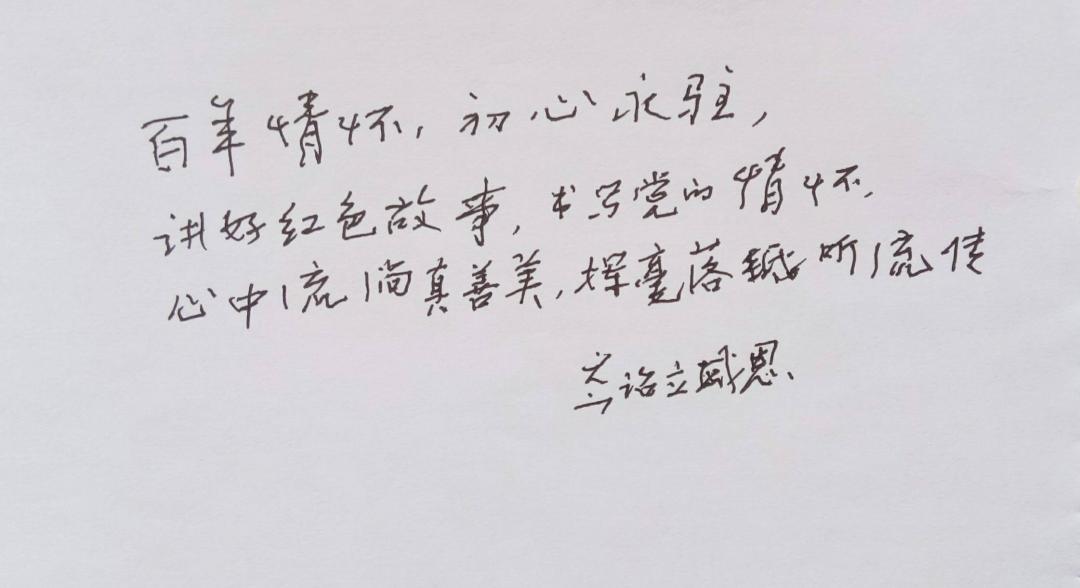 百年情怀，初心永驻，
讲好红色故事，书写党的情怀.
心中流淌真善美，挥毫落纸听流传
立感恩、